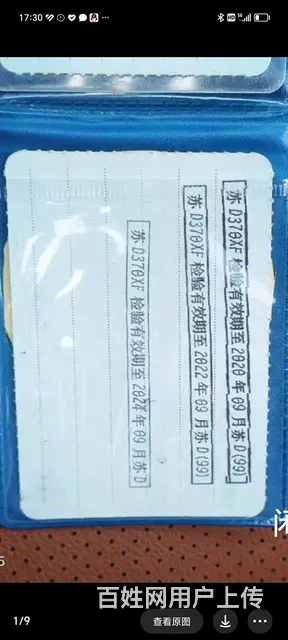 17:30
苏D370XF 检验有效期至2020年09月苏D(99)
苏D370XF 检验有效期至2022年09月苏D(99)
苏D370XF 检验有效期至2024年09月苏D
闭
5
百姓网用户上传
1/9
查看原图